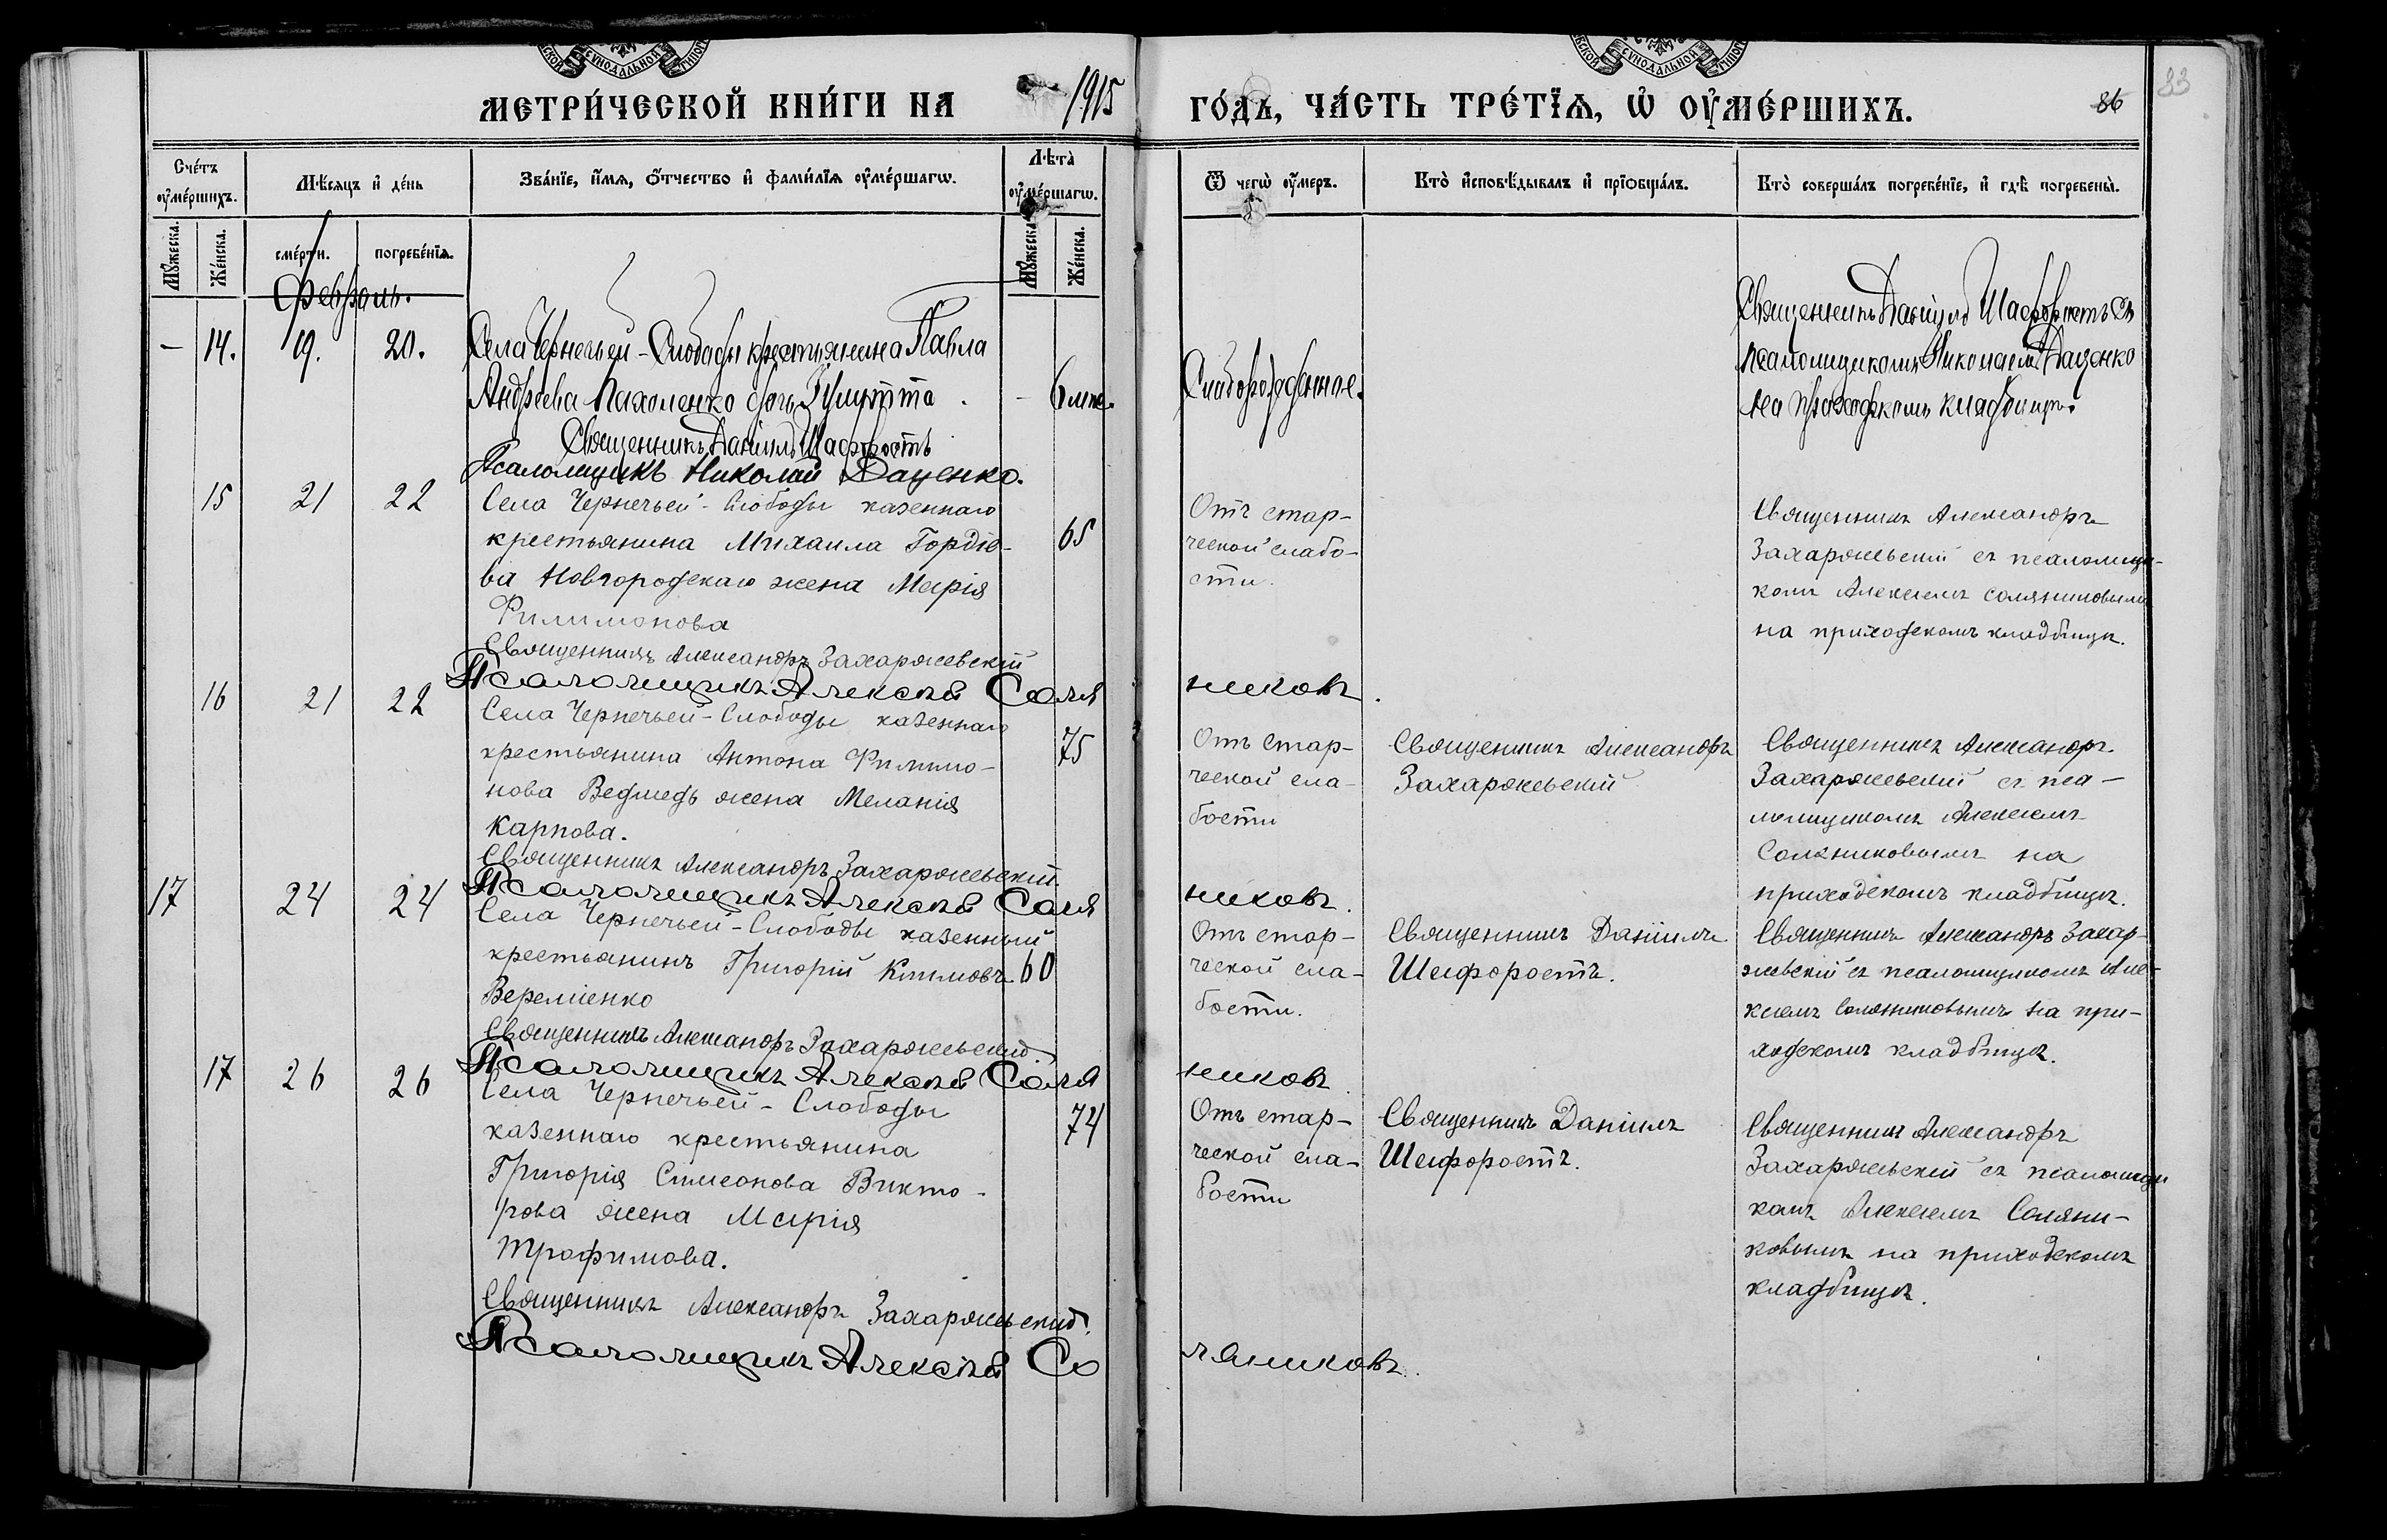 МЕТРИ́ЧЕСКОЙ КНИ́ГИ НА 1915 ГО́ДЪ, ЧА́СТЬ ТРЕ́ТЇѦ, Ѡ ОУМЕ́РШИХЪ.
86
83
Сче́тъ оумершихъ.
Мѣ́сяцъ и де́нь
Зва́нїе, и́мя, о́тчество и фами́лїя оуме́ршагѡ.
Лѣта̀ оуме́ршагѡ.
Ѿ чегѡ̀ оумеръ.
Кто̀ исповѣ́дывалъ и прїобща́лъ.
Кто̀ соверша́лъ погребе́нїе, и гдѣ̀ погребены̀.
Мꙋжеска.
Же́нска.
сме́рти.
погребе́нїя.
Мꙋжеска.
Же́нска.
Февраль.
— 14. 19. 20.
Села Чернечьей-Слободы крестьянина Павла
Андреева Пахоменко дочь
Священникъ Даніилъ Шафоростъ
Псаломщикъ Николай Даценко.
Слаборожденное.
Священникъ Даніилъ Шафоростъ съ
псаломщикомъ Николаемъ Даценко
на приходскомъ кладбищѣ.
15 21 22
Села Чернечьей-Слободы казеннаго
крестьянина Михаила Гордіе-
ва Новгородскаго жена Марія
Филимонова
65
Священникъ Александръ Захаржевскій
Псаломщикъ Алексѣй Соля
никовъ.
Отъ стар-
ческой слабо-
сти.
Священникъ Александръ
Захаржевскій съ псаломщи-
комъ Алексѣемъ Солянниковымъ
на приходскомъ кладбищѣ.
16 21 22
Села Чернечьей-Слободы казеннаго
крестьянина Антона Филимо-
нова Ведмедь жена Меланія
Карпова.
75
Священникъ Александръ Захаржевскій.
Псаломщикъ Алексѣй Соля
никовъ.
Отъ стар-
ческой сла-
бости
Священникъ Александръ
Захаржевскій
Священникъ Александръ
Захаржевскій съ пса-
ломщикомъ Алексѣемъ
Солянниковымъ на
приходскомъ кладбищѣ.
17 24 24
Села Чернечьей-Слободы казенный
крестьянинъ Григорій Климовъ 60
Вереміенко
Священникъ Александръ Захаржевскій.
Псаломщикъ Алексѣй Соля
никовъ
Отъ стар-
ческой сла-
бости.
Священникъ Даніилъ
Шафоростъ.
Священникъ Александръ Захар-
жевскій съ псаломщикомъ Але-
ксѣемъ Солянниковымъ на при-
ходскомъ кладбищѣ.
17 26 26
Села Чернечьей-Слободы
казеннаго крестьянина
Григорія Симеонова Викто-
рова жена Марія
Трофимова.
74
Священникъ Александръ Захаржевскій.
Псаломщикъ Алексѣй Со
ляниковъ.
Отъ стар-
ческой сла-
бости
Священникъ Даніилъ
Шафоростъ.
Священникъ Александръ
Захаржевскій съ псаломщи
комъ Алексѣемъ Соляни-
ковымъ на приходскомъ
кладбищѣ.